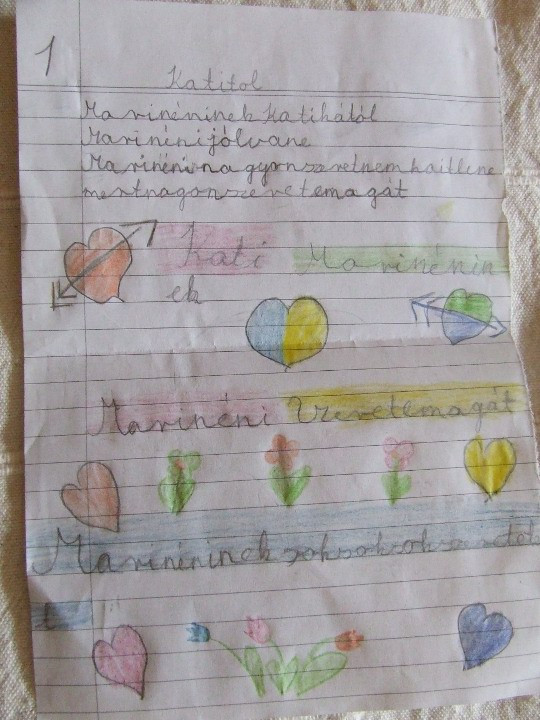 1
Katitol
Marinéninek katihától
Marinénijólvane
Marinénina gyonszeretnem haitlene
mertnagonszeretemagát
Kati Marinénin
ek
Marinéni Szeretemagát
Marinéninek soksoksok szeretet